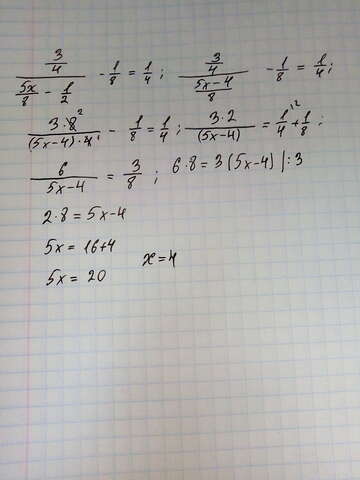 (3/4)/(5x/8 - 1/2) - 1/8 = 1/4 ; (3/4)/((5x-4)/8) - 1/8 = 1/4 ;
(3·8²)/((5x-4)·4¹) - 1/8 = 1/4 ; (3·2)/(5x-4) = 1/4 \2 + 1/8 ;
6/(5x-4) = 3/8 ; 6·8 = 3(5x-4) |:3
2·8 = 5x-4
5x = 16+4
5x = 20 x=4